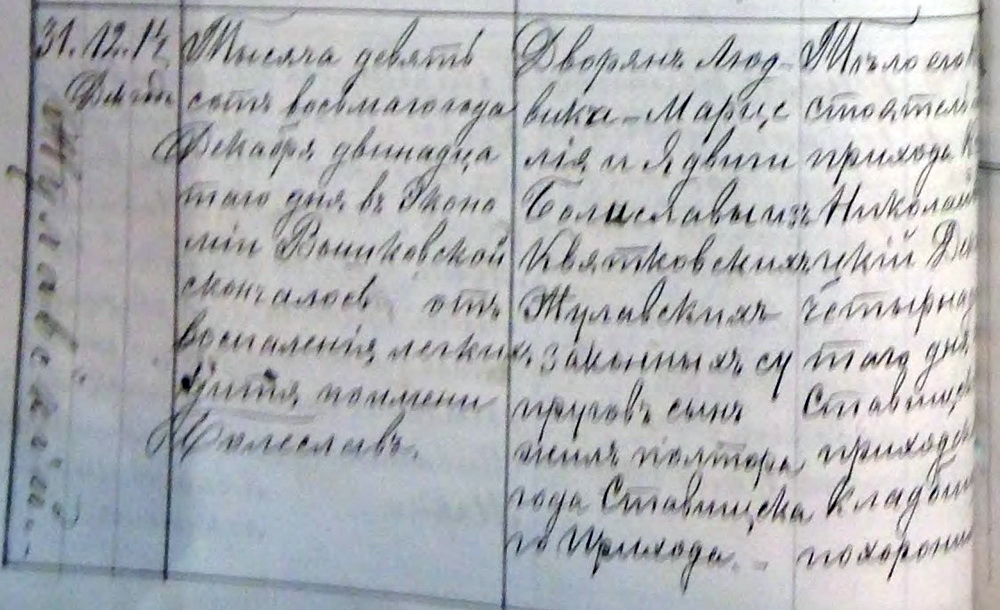 31.12.14
Жулавскій
Тысяча девять
сотъ восьмаго года
Декабря двѣнадца
таго дня въ Эконо
міи
скончалось отъ
воспаленія легкихъ
дитя по имени
Болеславъ.
Дворянъ Люд-
вика-Марце
лія и Ядвиги
Болиславы изъ
Квятковскихъ
Жулавскихъ
законныхъ су
пруговъ сынъ
жилъ полтора
года Ставищска
го Прихода.
Тѣло его
стоятел
прихода К
Николай
цкій Де
четырна
таго дня
Ставищс
приходс
кладби
похорони